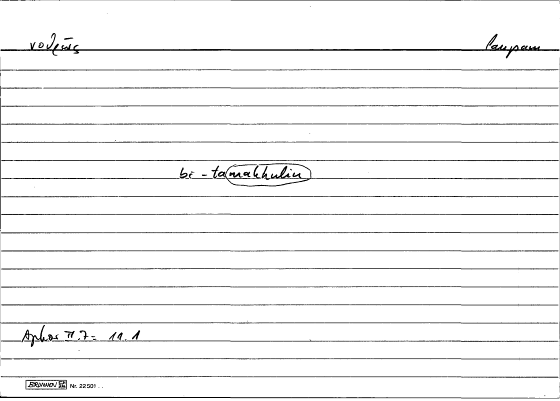 νωθρῶς
bi-tamahhulin
Aphor II.7 = 11.1
BRUNNEN Nr. 22501